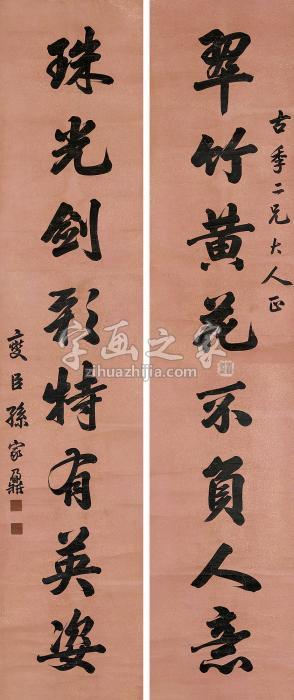 古季二兄大人正
翠竹黄花不負人意
珠光劍彩特有英姿
燮臣孫家鼐
字画之家
zihuazhijia.com